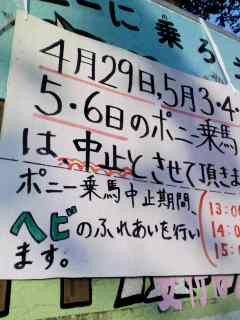 ニーに乗ろ
4月29日,5月3・4・
5・6日のポニー乗馬
は、中止とさせて頂きま
ポニー乗馬中止期間、
ヘビのふれあいを行い
ます。
13:0
14:0
15:0